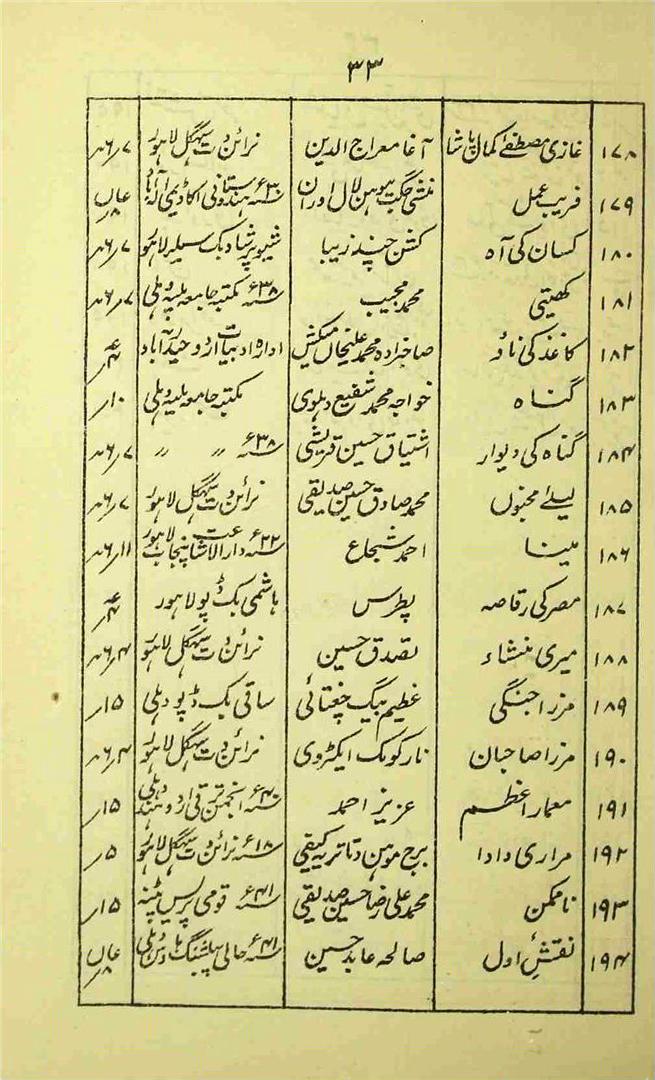 ۳۳
۱۷۸ غازی مصطفےٰ کمال پاشا آغا معراج الدین نرائن دت سہگل لاہور
۱۷۹ فریب عمل منشی جگت موہن لال رواں ۳۰ء ہندوستانی اکاڈیمی الہ آباد
۱۸۰ کسان کی آہ کشن چند زیبا شیوبرشاد بک سیلر لاہور
۱۸۱ کھیتی محمد مجیب ۳۸ء مکتبہ جامعہ ملیہ دہلی
۱۸۲ کاغذ کی ناؤ صاحبزادہ محمد علیخاں میکش ادارہ ادبیات اردو حیدرآباد
۱۸۳ گناہ خواجہ محمد شفیع دہلوی مکتبہ جامعہ ملیہ دہلی ۱۰؍
۱۸۴ گناہ کی دیوار اشتیاق حسین قریشی ۳۸ء 〃 〃
۱۸۵ لیلےٰ مجنوں محمد صادق حسین صدیقی نرائن دت سہگل لاہور
۱۸۶ مینا احمد شجاع ۲۲ء دارالاشاعت پنجاب لاہور
۱۸۷ مصر کی رقاصہ پطرس ہاشمی بک ڈپو لاہور
۱۸۸ میری منشاء تصدق حسین نرائن دت سہگل لاہور
۱۸۹ مرزا جنگی عظیم بیگ چغتائی ساقی بک ڈپو دہلی ۱۵؍
۱۹۰ مرزا صاحبان نارکوبک ایکٹروی نرائن دت سہگل لاہور
۱۹۱ معمار اعظم عزیز احمد ۴۰ء انجمن ترقی اردو ہند دہلی ۱۵؍
۱۹۲ مراری دادا برج موہن دتاتریہ کیفی ۱۸ء نرائن دت سہگل لاہور ۵؍
۱۹۳ ناممکن محمد علی رضا حسین صدیقی ۴۱ء قومی پریس پٹنہ ۱۵؍
۱۹۴ نقشِ اول صالحہ عابد حسین ۴۱ء حالی پبلشنگ ہاؤس دہلی